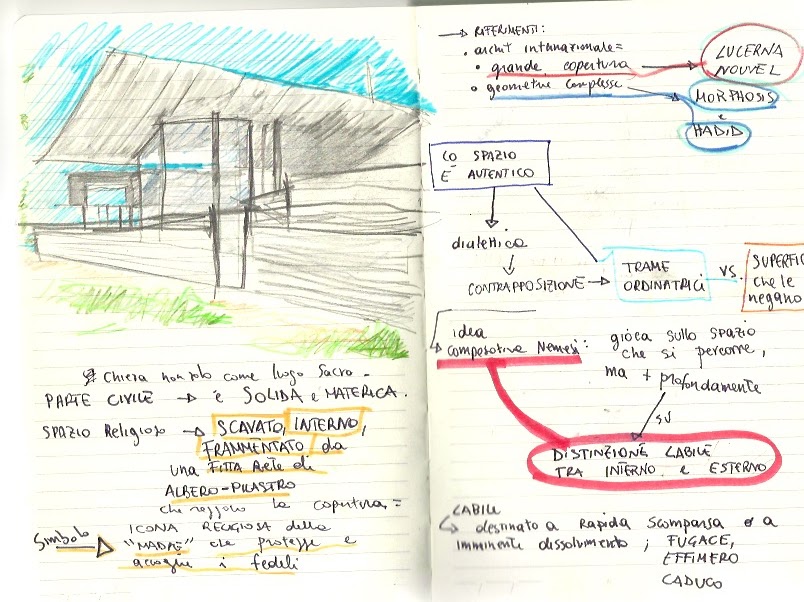 Chiesa non solo come luogo sacro -
PARTE CIVILE → è SOLIDA e MATERICA.
SPAZIO Religioso → SCAVATO, INTERNO,
FRAMMENTATO da
una FITTA Rete di
ALBERO-PILASTRO
che reggono la copertura =
Simbolo → ICONA RELIGIOSA della
"MADRE" che protegge e
accoglie i fedeli
→ RIFERIMENTI:
• archit internazionale =
• grande copertura → LUCERNA
NOUVEL
• geometrie complesse → MORPHOSIS
e
HADID
LO SPAZIO
È AUTENTICO
dialettica
CONTRAPPOSIZIONE → TRAME
ORDINATRICI
VS.
SUPERFIC
che le
negano
idea
compositiva Nemesi:
gioca sullo SPAZIO
che si percorre,
ma + profondamente
SU
DISTINZIONE LABILE
TRA INTERNO e ESTERNO
LABILE
destinato a Rapida Scomparsa o a
imminente dissolvimento ; FUGACE,
EFFIMERO
CADUCO